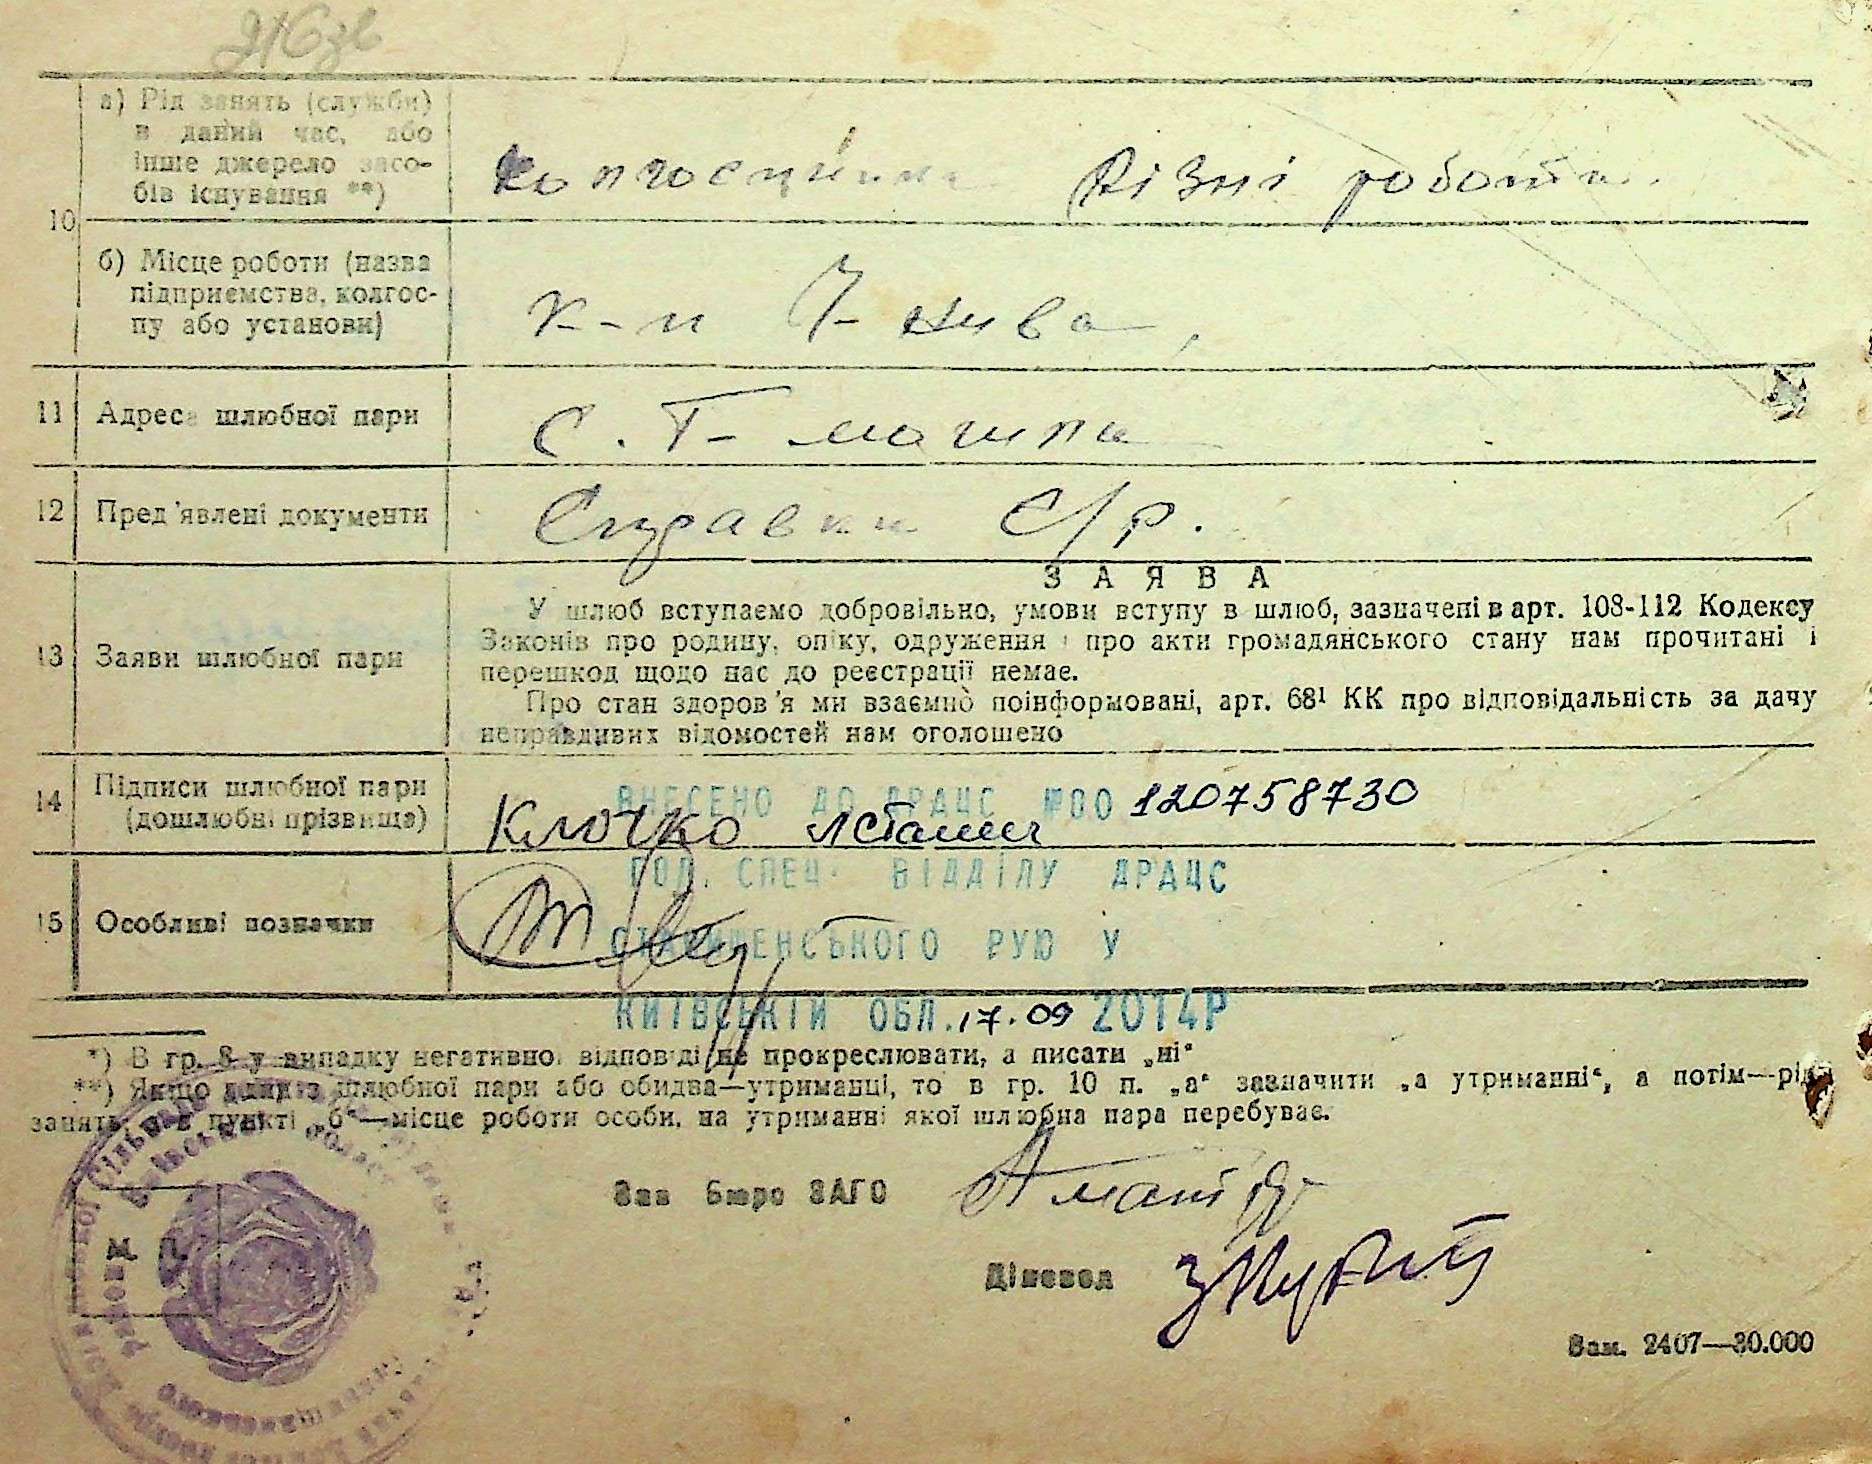 10
а) Рід занять (служби)
в даний час, або
інше джерело засо-
бів існування **)
Різні роботи
б) Місце роботи (назва
підприємства, колгос-
пу або установи)
к-п Ч- нива
11 Адреса шлюбної пари
с. Т- могила
12 Пред'явлені документи
Справки С/р.
13 Заяви шлюбної пари
ЗАЯВА
У шлюб вступаємо добровільно, умови вступу в шлюб, зазначені в арт. 108-112 Кодексу
Законів про родину, опіку, одруження і про акти громадянського стану нам прочитані і
перешкод щодо нас до реєстрації немає.
Про стан здоров'я ми взаємно поінформовані, арт. 68¹ КК про відповідальність за дачу
неправдивих відомостей нам оголошено
14 Підписи шлюбної пари
(дошлюбні прізвища)
ВНЕСЕНО ДО ДРАЦС №00 120758730
Клочко
ГОЛ. СПЕЦ. ВІДДІЛУ ДРАЦС
15 Особливі позначки
СТАВИЩЕНСЬКОГО РУЮ У
КИЇВСЬКІЙ ОБЛ. 17.09 2014Р
*) В гр. 8 у випадку негативної відповіді не прокреслювати, а писати „ні“
**) Якщо один із шлюбної пари або обидва—утриманці, то в гр. 10 п. „а“ зазначити „а утриманні“, а потім—рід
занять, а в пункті „б“—місце роботи особи, на утриманні якої шлюбна пара перебуває.
Зав Бюро ЗАГС
Діловод
Зам. 2407—30.000